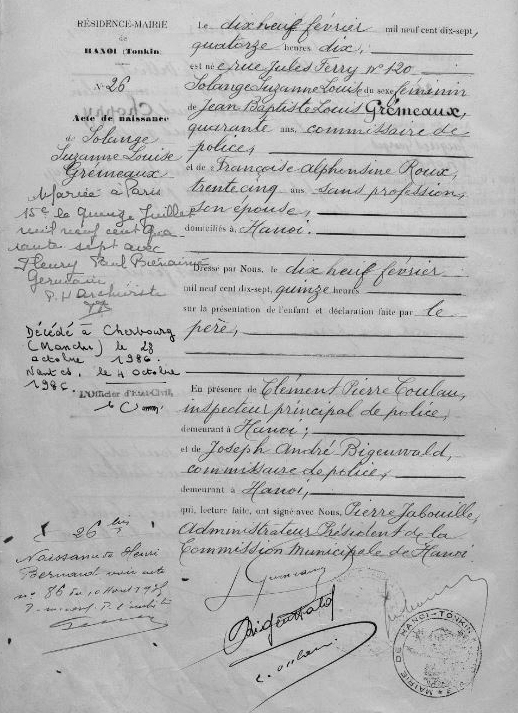 RÉSIDENCE-MAIRIE
de
HANOI (Tonkin)
N° 26
Acte de naissance
de Solange
Suzanne Louise
Grémeaux
Mariée à Paris
15e le quinze Juillet
mil neuf cent qua
rante sept avec
Fleury Paul Bienaimé
Germain
P. l'Archiviste
Décédé à Cherbourg
(Manche) le 28
octobre 1986.
Nantes, le
L'Officier d'État-Civil,
Le dix neuf février mil neuf cent dix-sept,
quatorze heures dix,
est né e rue Jules Ferry N° 120
Solange Suzanne Louise du sexe féminin
de Jean Baptiste Louis Grémeaux,
quarante ans, commissaire de
police,
et de Françoise Alphonsine Roux,
trente cinq ans sans profession,
son épouse,
domiciliés à, Hanoi.
Dressé par Nous, le dix neuf février
mil neuf cent dix-sept, quinze heures
sur la présentation de l'enfant et déclaration faite par le
père,
En présence de Clément Pierre Coulau,
inspecteur principal de police,
demeurant à Hanoi,
et de Joseph André Bigenwald,
commissaire de police,
demeurant à Hanoi,
qui, lecture faite, ont signé avec Nous, Pierre Jabouille,
Administrateur Président de la
Commission Municipale de Hanoi
26 bis
Naissance de Henri
Bernard voir acte
n° 86 du
Bigenwald
MAIRIE DE HANOI-TONKIN